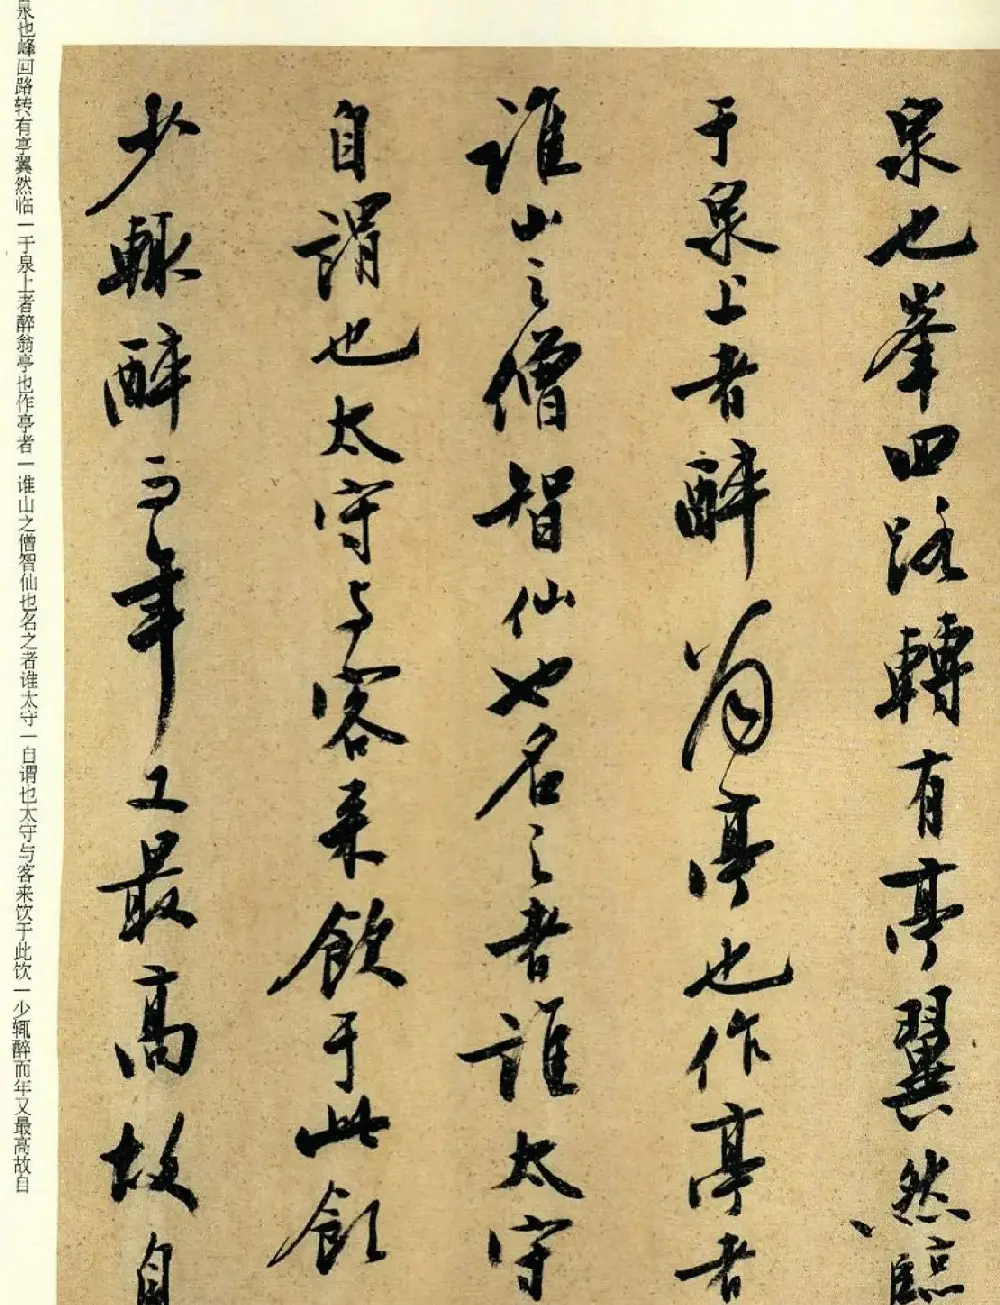 泉也峯回路轉有亭翼然臨
于泉上者醉翁亭也作亭者
誰山之僧智仙也名之者誰太守
自謂也太守与客来飲于此飲
少輒醉而年又最高故自
泉也峰回路转有亭翼然临一于泉上者醉翁亭也作亭者一谁山之僧智仙也名之者谁太守一自谓也太守与客来饮于此饮一少辄醉而年又最高故自